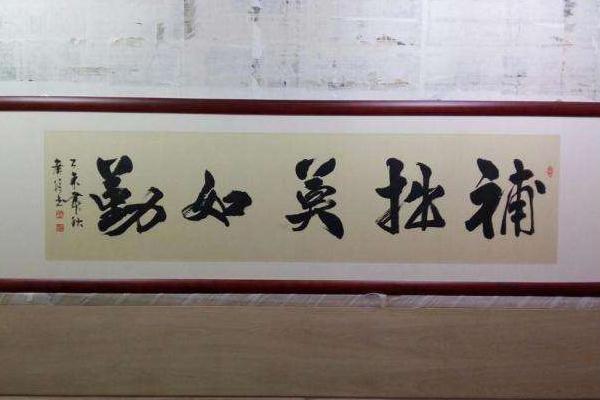 補拙莫如勤
乙未秋